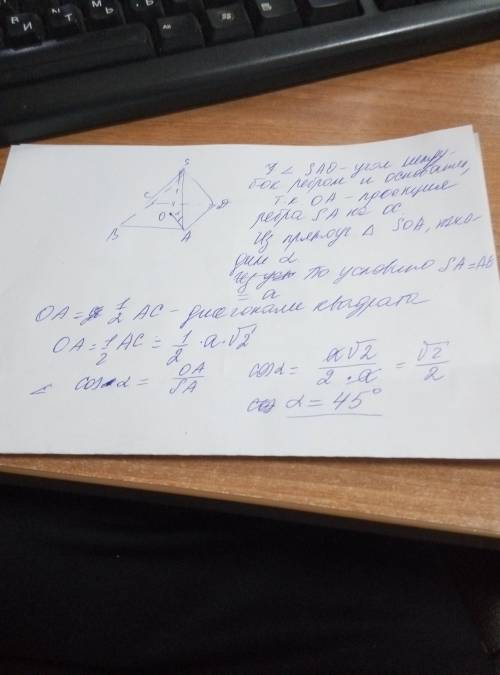 S
C
D
O
B
A
∠ SAO - угол между
бок ребром и основанием,
т.к OA - проекция
ребра SA на α.
Из прямоуг Δ SOA, нахо-
дим α
По условию SA = AB
= a
OA = 1/2 AC - диагонали квадрата
OA = 1/2 AC = 1/2 · a · √2
cos α = OA/SA
cos α = a√2 / 2 · a = √2/2
α = 45°